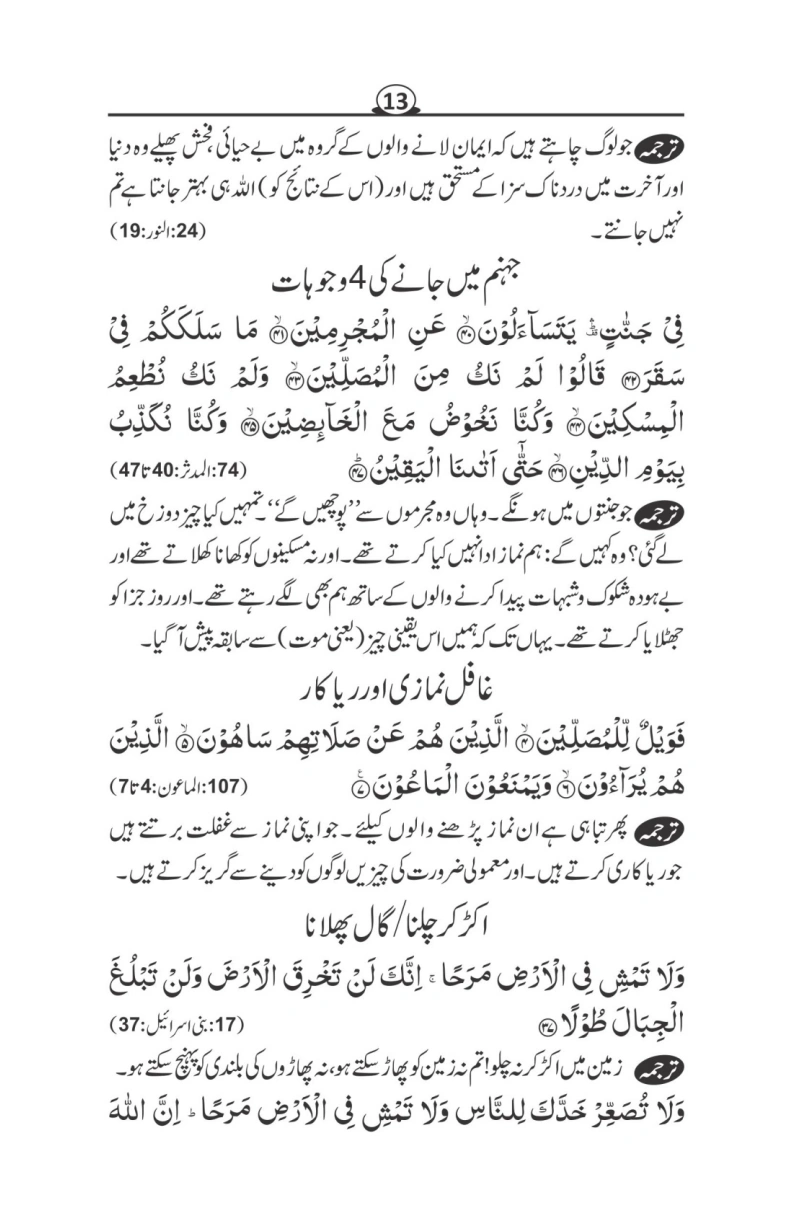 13
ترجمہ جو لوگ چاہتے ہیں کہ ایمان لانے والوں کے گروہ میں بے حیائی، فحش پھیلے وہ دنیا
اور آخرت میں دردناک سزا کے مستحق ہیں اور (اس کے نتائج کو) اللہ ہی بہتر جانتا ہے تم
نہیں جانتے۔ (24:النور:19)
جہنم میں جانے کی 4 وجوہات
فِیْ جَنّٰتٍ ۛ۫ یَتَسَآءَلُوْنَ ﴿ۙ۴۰﴾ عَنِ الْمُجْرِمِیْنَ ﴿ۙ۴۱﴾ مَا سَلَكَكُمْ فِیْ
سَقَرَ ﴿۴۲﴾ قَالُوْا لَمْ نَكُ مِنَ الْمُصَلِّیْنَ ﴿ۙ۴۳﴾ وَلَمْ نَكُ نُطْعِمُ
الْمِسْكِیْنَ ﴿ۙ۴۴﴾ وَكُنَّا نَخُوْضُ مَعَ الْخَآىِٕضِیْنَ ﴿ۙ۴۵﴾ وَكُنَّا نُكَذِّبُ
بِیَوْمِ الدِّیْنِ ﴿ۙ۴۶﴾ حَتّٰۤی اَتٰىنَا الْیَقِیْنُ ﴿ؕ۴۷﴾ (74:المدثر:40تا47)
ترجمہ جو جنتوں میں ہونگے۔ وہاں وہ مجرموں سے ’’پوچھیں گے‘‘۔ تمہیں کیا چیز دوزخ میں
لے گئی؟ وہ کہیں گے: ہم نماز ادا نہیں کیا کرتے تھے۔ اور نہ مسکینوں کو کھانا کھلاتے تھے اور
بے ہودہ شکوک و شبہات پیدا کرنے والوں کے ساتھ ہم بھی لگے رہتے تھے۔ اور روز جزا کو
جھٹلایا کرتے تھے۔ یہاں تک کہ ہمیں اس یقینی چیز (یعنی موت) سے سابقہ پیش آ گیا۔
غافل نمازی اور ریا کار
فَوَیْلٌ لِّلْمُصَلِّیْنَ ﴿ۙ۴﴾ الَّذِیْنَ هُمْ عَنْ صَلَاتِهِمْ سَاهُوْنَ ﴿ۙ۵﴾ الَّذِیْنَ
هُمْ یُرَآءُوْنَ ﴿ۙ۶﴾ وَیَمْنَعُوْنَ الْمَاعُوْنَ ﴿۷﴾ (107:الماعون:4تا7)
ترجمہ پھر تباہی ہے ان نماز پڑھنے والوں کیلئے۔ جو اپنی نماز سے غفلت برتتے ہیں
جو ریا کاری کرتے ہیں۔ اور معمولی ضرورت کی چیزیں لوگوں کو دینے سے گریز کرتے ہیں۔
اکڑ کر چلنا/گال پھلانا
وَلَا تَمْشِ فِی الْاَرْضِ مَرَحًا ۚ اِنَّكَ لَنْ تَخْرِقَ الْاَرْضَ وَلَنْ تَبْلُغَ
الْجِبَالَ طُوْلًا ﴿۳۷﴾ (17:بنی اسرائیل:37)
ترجمہ زمین میں اکڑ کر نہ چلو! تم نہ زمین کو پھاڑ سکتے ہو، نہ پہاڑوں کی بلندی کو پہنچ سکتے ہو۔
وَلَا تُصَعِّرْ خَدَّكَ لِلنَّاسِ وَلَا تَمْشِ فِی الْاَرْضِ مَرَحًا ؕ اِنَّ اللّٰهَ